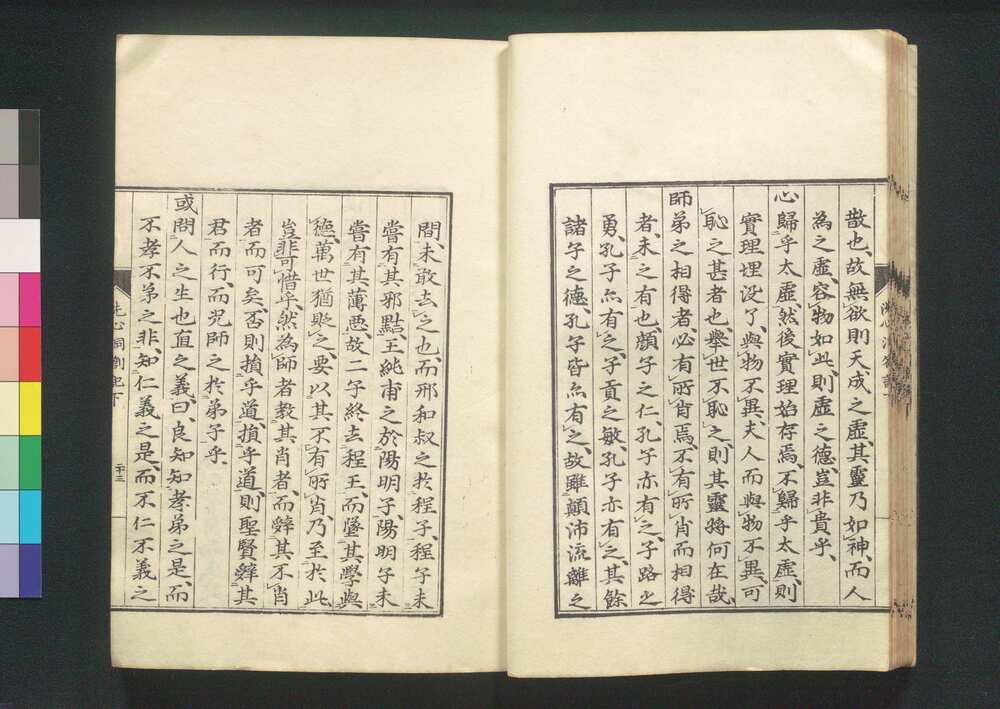 散也、故無欲則天成之虛、其靈乃如神、而人
為之虛、容物如此、則虛之德、豈非貴乎、
心歸乎太虛、然後實理始存焉、不歸乎太虛、則
實理埋没了、與物不異、夫人而與物不異、可
恥之甚者也、舉世不恥之、則其靈將何在哉、
師弟之相得者、必有所肖焉、不有所肖而相得
者、未之有也、顏子之仁、孔子亦有之、子路之
勇、孔子亦有之、子貢之敏、孔子亦有之、其餘
諸子之德、孔子皆亦有之、故雖顛沛流離之
間、未敢去之也、而邢和叔之於程子、程子未
嘗有其邪黠、王純甫之於陽明子、陽明子未
嘗有其薄惡、故二子終去程王、而墜其學與
德、萬世猶貶之、要以其不有所肖、乃至於此、
豈非可惜乎、然為師者、教其肖者、而辭其不肖
者而可矣、否則損乎道、損乎道、則聖賢辭其
君而行、而況師之於弟子乎、
或問人之生也直之義、曰、良知知孝弟之是、而
不孝不弟之非、知仁義之是、而不仁不義之
洗心洞劄記下
二十三